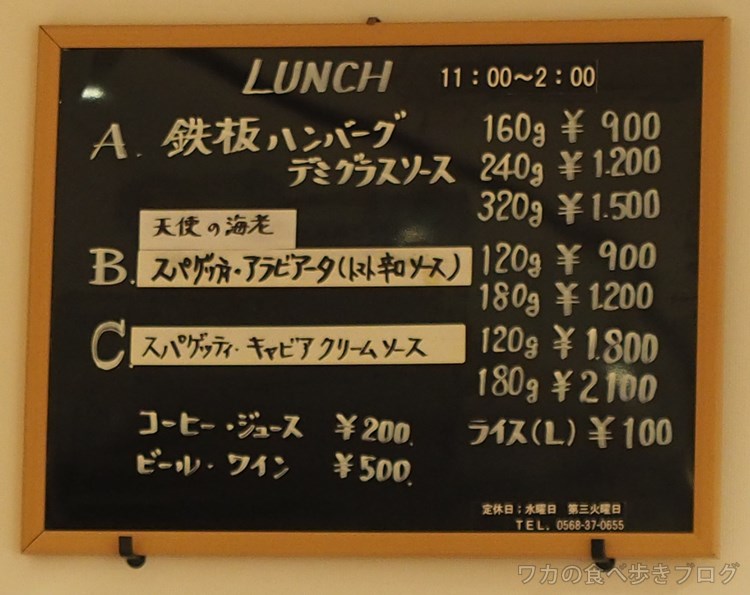 LUNCH 11:00～2:00
A. 鉄板ハンバーグ 160g ¥ 900
デミグラスソース 240g ¥1.200
320g ¥1.500
天使の海老
B. スパゲッティ・アラビアータ(トマト辛口ソース) 120g ¥ 900
180g ¥1.200
C. スパゲッティ・キャビアクリームソース 120g ¥1.800
180g ¥2100
コーヒー・ジュース ¥200. ライス(L) ¥100
ビール・ワイン ¥500.
定休日:水曜日 第三火曜日
TEL. 0568-37-0655
ワカの食べ歩きブログ